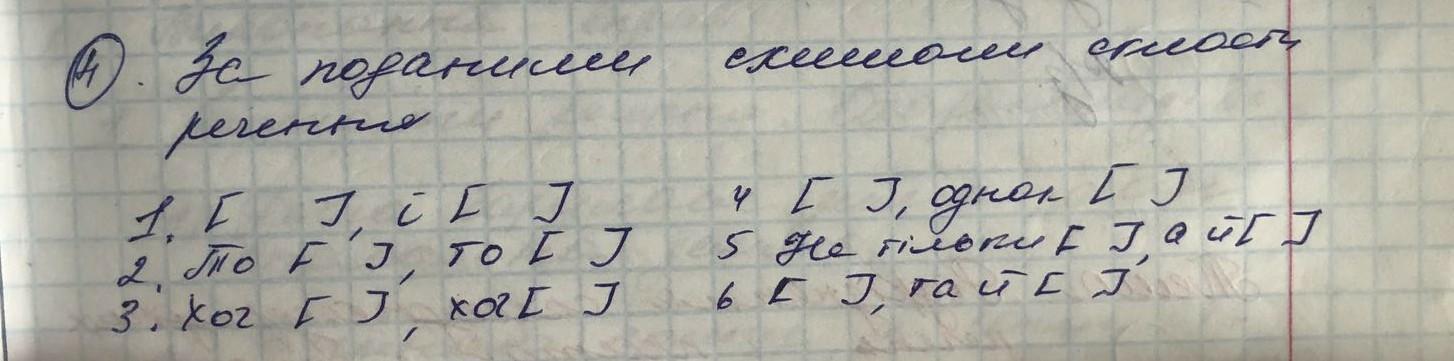 4. За поданими схемами скласти
речення
1. [ ], і [ ] 4 [ ], однак [ ]
2. То [ ], то [ ] 5 Не тільки [ ], а й [ ]
3. Хоч [ ], хоч [ ] 6 [ ], та й [ ]